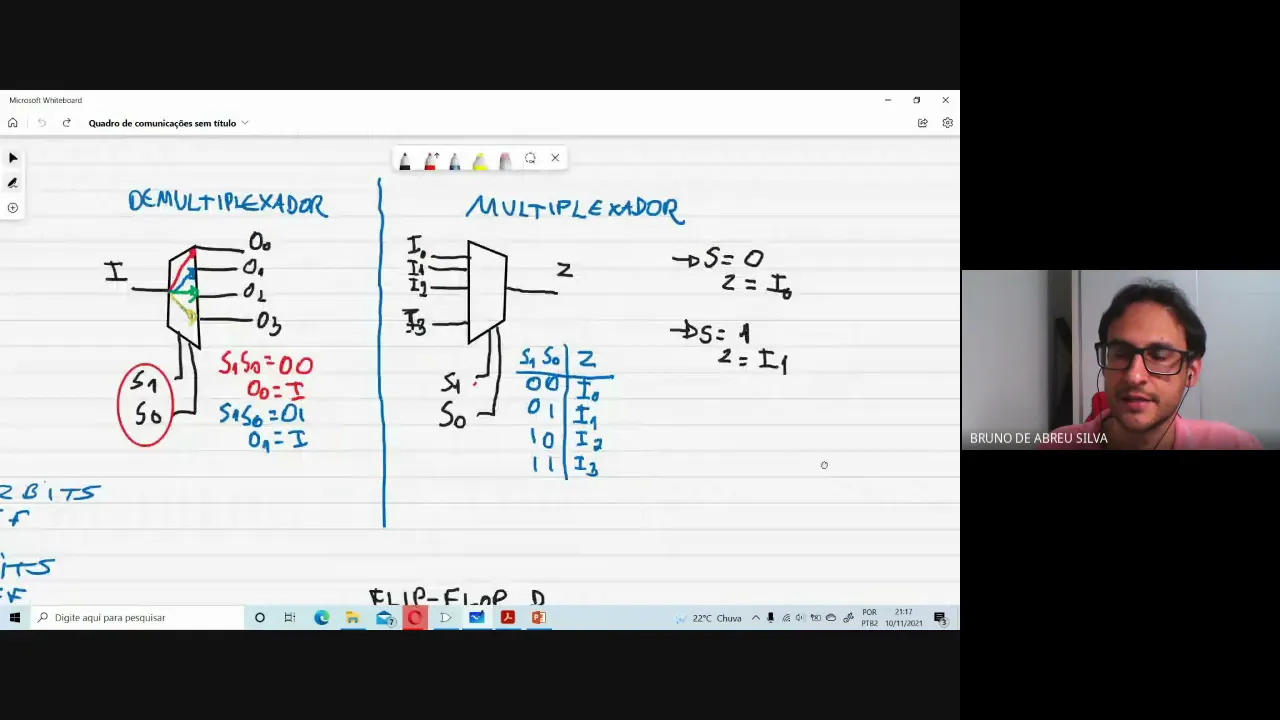 Microsoft Whiteboard
Quadro de comunicações sem título
DEMULTIPLEXADOR
I
O0
O1
O2
O3
S1
S0
S1S0=00
O0=I
S1S0=01
O1=I
2 BITS
MULTIPLEXADOR
I0
I1
I2
I3
Z
S1
S0
S1 S0 Z
00 I0
01 I1
10 I2
11 I3
→S=0
Z=I0
→S=1
Z=I1
FLIP-FLOP D
BRUNO DE ABREU SILVA
Digite aqui para pesquisar
7
22°C Chuva
POR
PTB2
21:17
10/11/2021
3